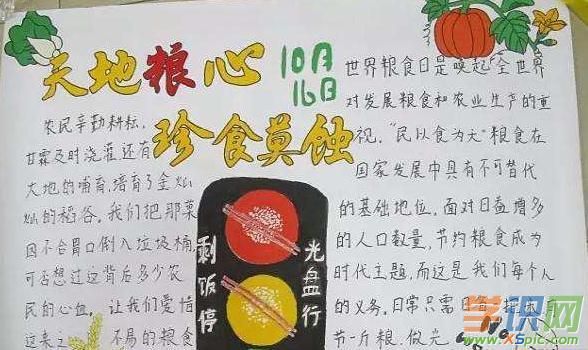 天地粮心
10月
16日
珍食莫蚀
农民辛勤耕耘,
甘霖及时浇灌还有
大地的哺育,培育了金灿
灿的稻谷,我们把那菜
因不合胃口倒入垃圾桶,
可否想过这背后多少农
民的心血,让我们爱惜
这来之 不易的粮食
剩饭停
光盘行
世界粮食日是唤起全世界
对发展粮食和农业生产的重
视。"民以食为天"粮食在
国家发展中具有不可替代
的基础地位,面对日益增多
的人口数量,节约粮食成为
时代主题,而这是我们每个人
的义务,日常只需
节一斤粮,做光
学识网